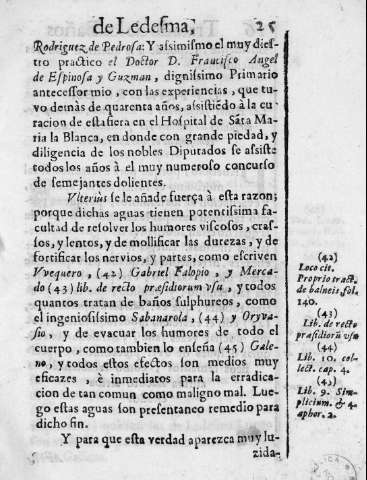 de Ledesma; 25
Rodriguez de Pedrosa: Y assimismo el muy dies-
tro practico el Doctor D. Francisco Angel
de Espinosa y Guzman, dignissimo Primario
antecessor mio, con las experiencias, que tu-
vo demàs de quarenta años, assistiẽdo à la cu
racion de esta fiera en el Hospital de Sãta Ma-
ria la Blanca, en donde con grande piedad, y
diligencia de los nobles Diputados se assiste
todos los años à el muy numeroso concurso
de semejantes dolientes.
Vlteriùs se le añade fuerça à esta razon;
porque dichas aguas tienen potentissima fa-
cultad de resolver los humores viscosos, cras-
sos, y lentos, y de mollificar las durezas, y de
fortificar los nervios, y partes, como escriven
Vvequero, (42) Gabriel Falopio, y Merca-
do (43) lib. de recto præsidiorum vsu, y todos
quantos tratan de baños sulphureos, como
el ingeniosissimo Sabanarola, (44) y Oryva-
sio, y de evacuar los humores de todo el
cuerpo, como tambien lo enseña (45) Gale-
no, y todos estos efectos son medios muy
eficazes, è inmediatos para la erradica-
cion de tan comun como maligno mal. Lue-
go estas aguas son presentaneo remedio para
dicho fin.
Y para que esta verdad aparezca muy lu-
zida-
(42)
Loco cit.
Proprio tract.
de balneis, fol.
140.
(43)
Lib. de recto
præsidiorũ vsu
(44)
Lib. 10. col-
lect. cap. 4.
(45)
Lib. 9. Sim-
plicium. & 4.
aphor. 2.